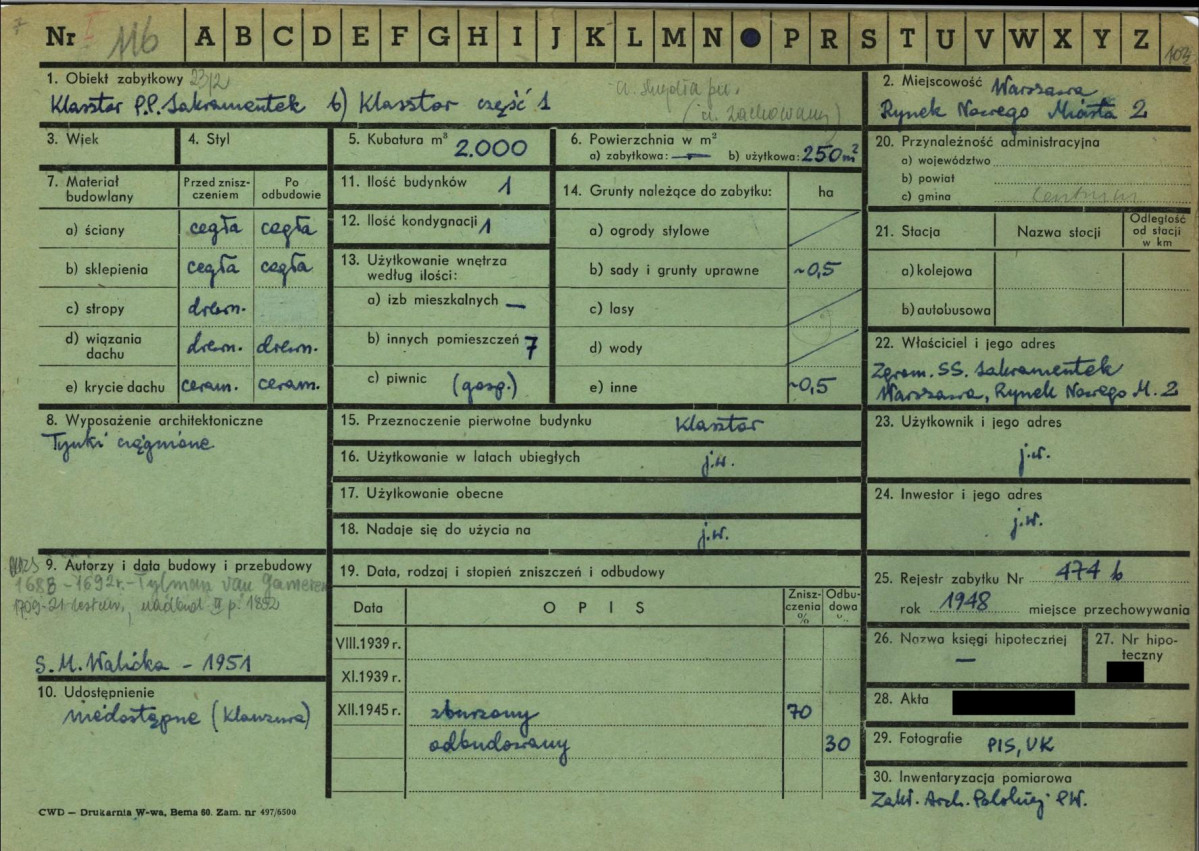 Nr I 116 A B C D E F G H I J K L M N P R S T U V W X Y Z 103
1. Obiekt zabytkowy 23/2
Klasztor P.P. Sakramentek b) Klasztor część 1
(cz. zachowany)
2. Miejscowość Warszawa
Rynek Nowego Miasta 2
3. Wiek
4. Styl
5. Kubatura m³ 2.000
6. Powierzchnia w m²
a) zabytkowa: — b) użytkowa: 250m²
20. Przynależność administracyjna
a) województwo
b) powiat
c) gmina Centrum
7. Materiał budowlany
Przed zniszczeniem
Po odbudowie
a) ściany cegła cegła
b) sklepienia cegła cegła
c) stropy drewn.
d) wiązania dachu drewn. drewn.
e) krycie dachu ceram. ceram.
11. Ilość budynków 1
12. Ilość kondygnacji 1
13. Użytkowanie wnętrza
według ilości:
a) izb mieszkalnych —
b) innych pomieszczeń 7
c) piwnic (gosp.)
14. Grunty należące do zabytku: ha
a) ogrody stylowe
b) sady i grunty uprawne ~0,5
c) lasy
d) wody
e) inne ~0,5
21. Stacja Nazwa stacji Odległość od stacji w km
a) kolejowa
b) autobusowa
22. Właściciel i jego adres
Zgrom. SS. Sakramentek
Warszawa, Rynek Nowego M. 2
8. Wyposażenie architektoniczne
Tynki ciągnione.
15. Przeznaczenie pierwotne budynku Klasztor
16. Użytkowanie w latach ubiegłych j.w.
17. Użytkowanie obecne
18. Nadaje się do użycia na j.w.
23. Użytkownik i jego adres
j.w.
24. Inwestor i jego adres
j.w.
9. Autorzy i data budowy i przebudowy
1688-1692r.-Tylman van Gameren
1709-21 nadbud. II p. 1892
S. M. Walicka - 1951
10. Udostępnienie
niedostępne (Klauzura)
19. Data, rodzaj i stopień zniszczeń i odbudowy
Data OPIS Zniszczenia % Odbudowa %
VIII.1939 r.
XI.1939 r.
XII.1945 r. zburzony 70
odbudowany 30
25. Rejestr zabytku Nr 474 b
rok 1948 miejsce przechowywania
26. Nazwa księgi hipotecznej
—
27. Nr hipoteczny
28. Akta
29. Fotografie PIS, UK
30. Inwentaryzacja pomiarowa
Zakł. Arch. Polskiej P.W.
CWD — Drukarnia W-wa, Bema 60. Zam. nr 497/6500